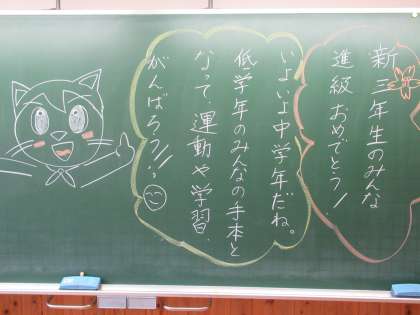 新三年生のみんな
進級おめでとう！
いよいよ中学年だね。
低学年のみんなの手本と
なって、運動や学習、
がんばろう!!